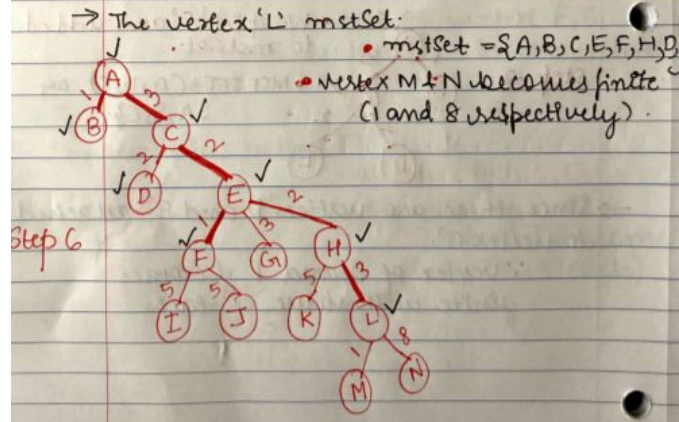 → The vertex 'L' mstSet.
• mstSet = {A,B,C,E,F,H,D,
• vertex M & N becomes finite
(1 and 8 respectively).
A
1 3
B C
2 2
D E
Step 6
1 3 2
F G H
5 5 5 3
I J K L
1 8
M N